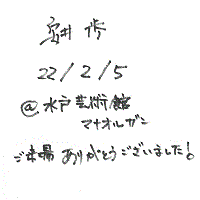 22/2/5
@水戸芸術館
マナオルガン
ご来場ありがとうございました!